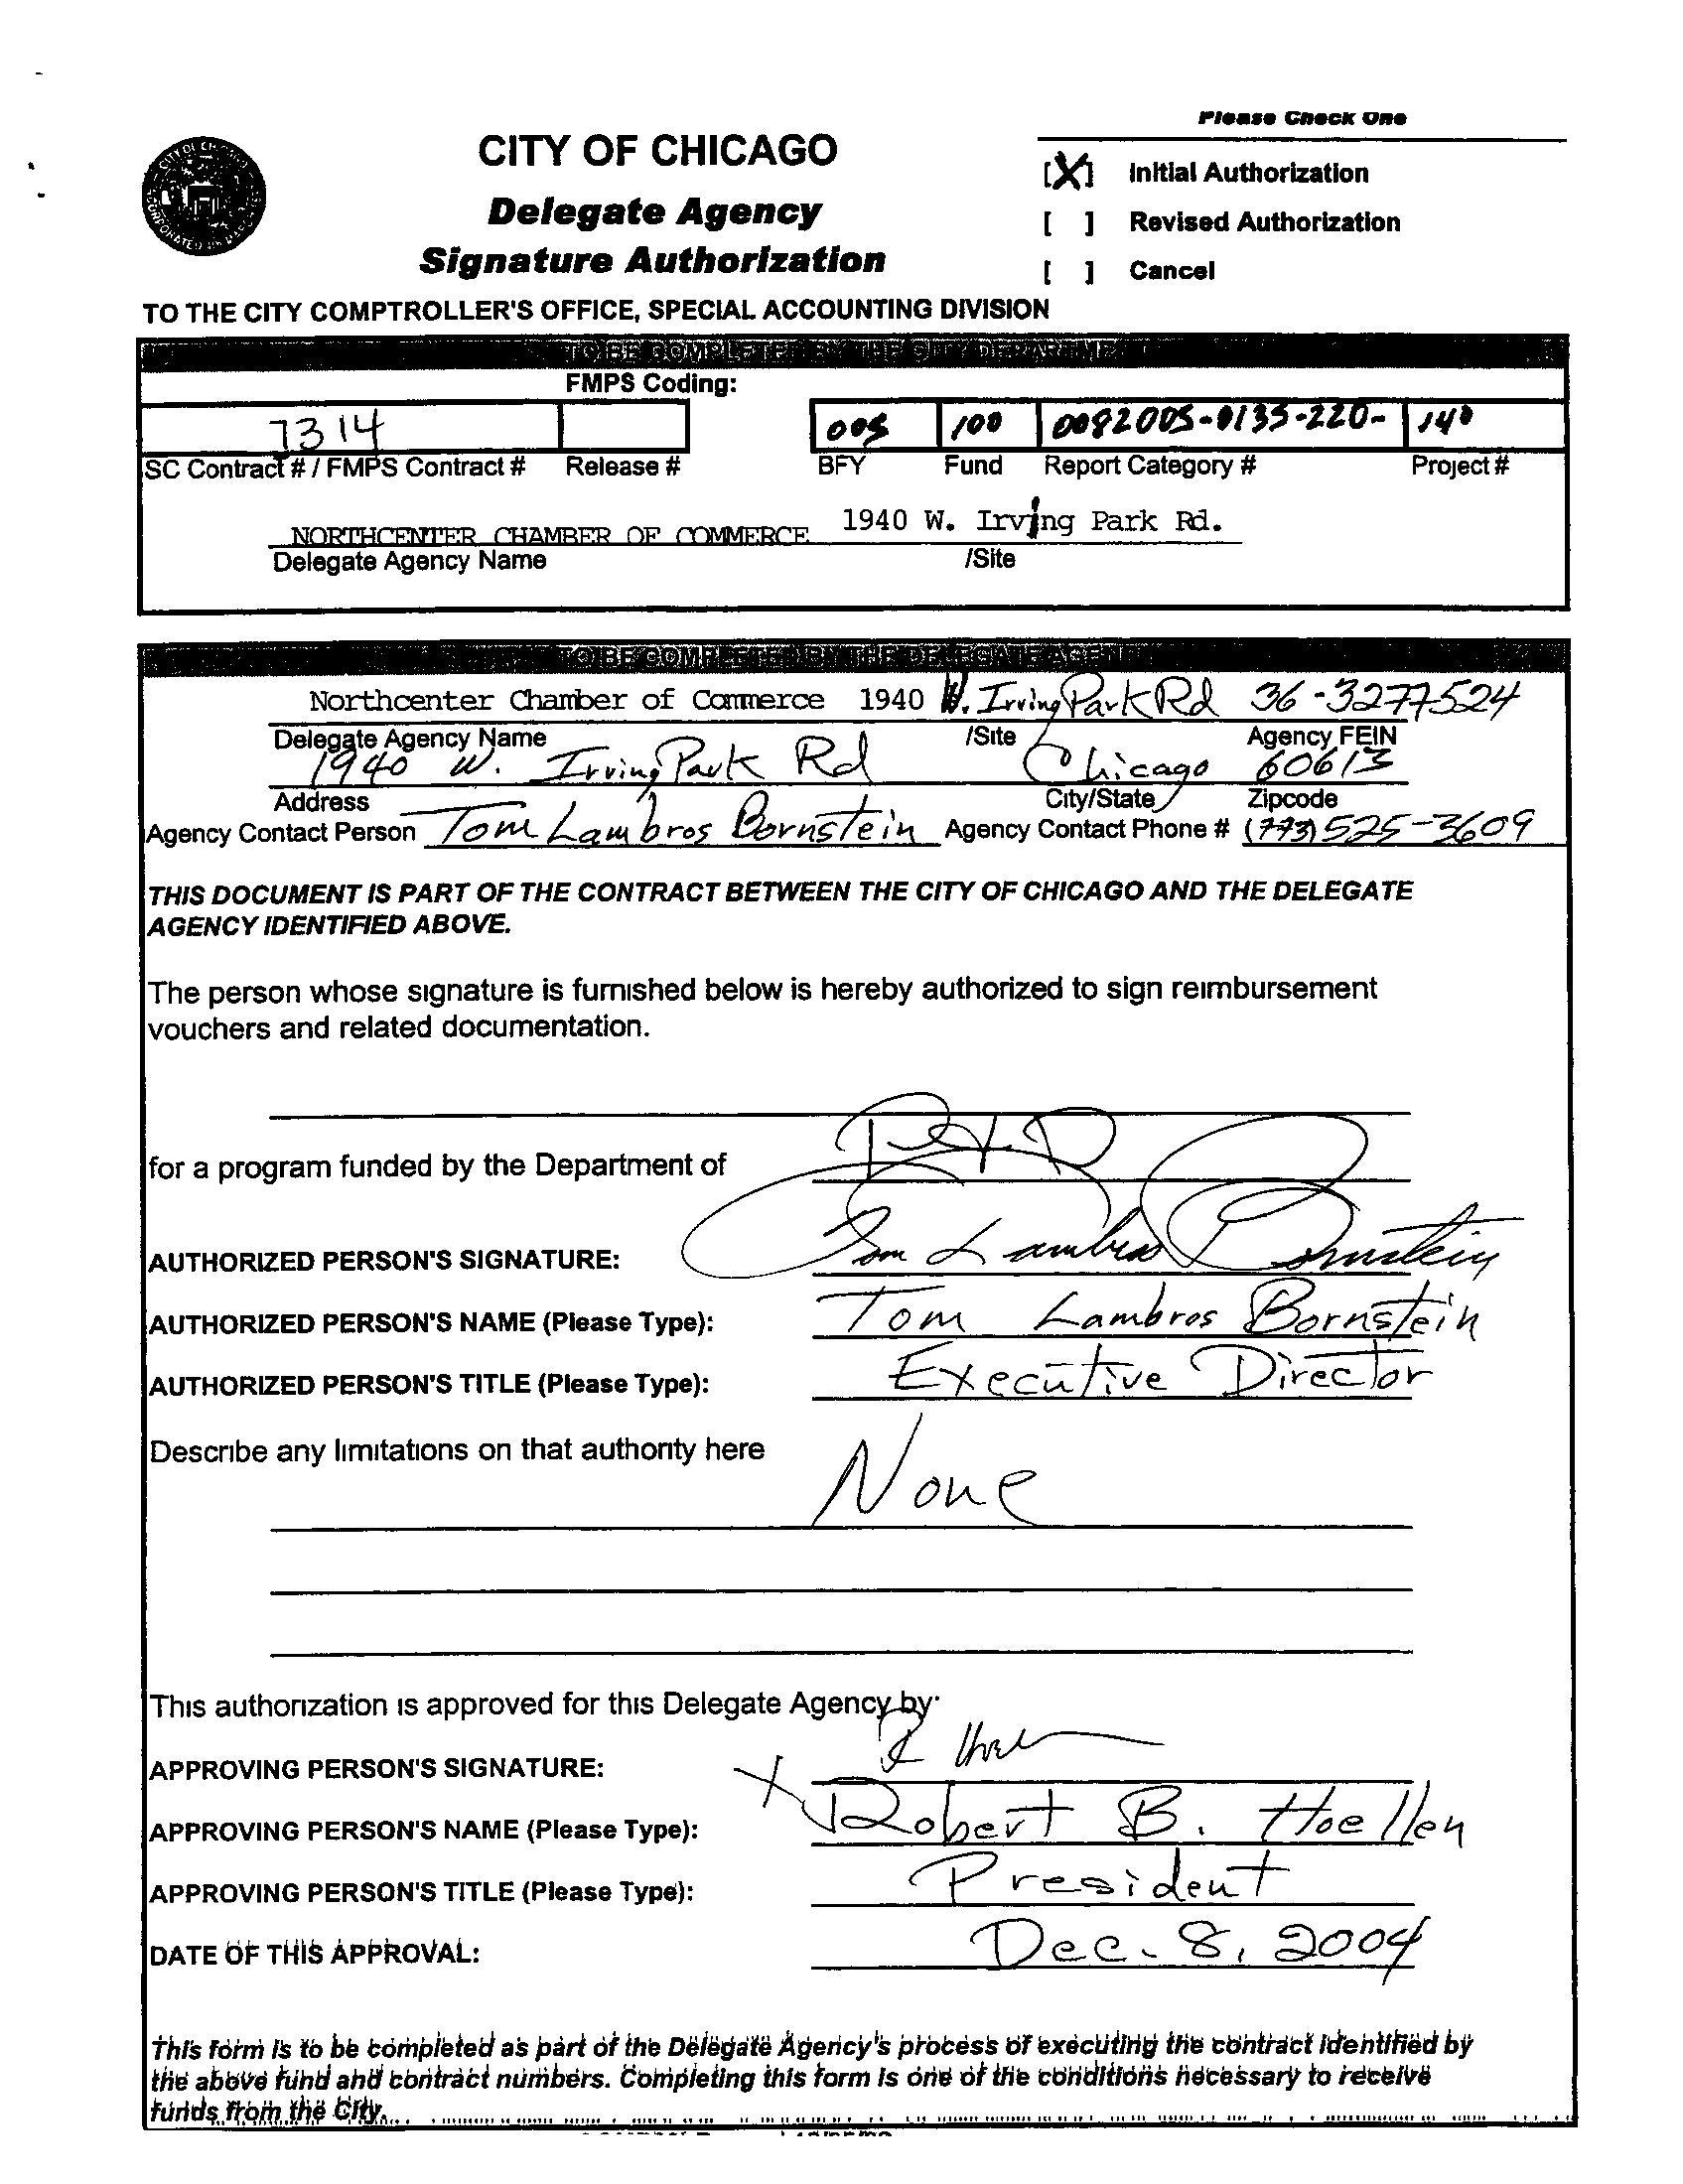 Please Check One
CITY OF CHICAGO
Delegate Agency
Signature Authorization
[X] Initial Authorization
[ ] Revised Authorization
[ ] Cancel
TO THE CITY COMPTROLLER'S OFFICE, SPECIAL ACCOUNTING DIVISION
TO BE COMPLETED BY THE CITY DEPARTMENT
FMPS Coding:
7314 005 100 0082005-0135-220- 140
SC Contract # / FMPS Contract # Release # BFY Fund Report Category # Project #
NORTHCENTER CHAMBER OF COMMERCE 1940 W. Irving Park Rd.
Delegate Agency Name /Site
TO BE COMPLETED BY THE DELEGATE AGENCY
Northcenter Chamber of Commerce 1940 W. Irving Park Rd 36-3277524
Delegate Agency Name /Site Agency FEIN
1940 W. Irving Park Rd Chicago 60613
Address City/State Zipcode
Agency Contact Person Tom Lambros Bornstein Agency Contact Phone # (773) 525-3609
THIS DOCUMENT IS PART OF THE CONTRACT BETWEEN THE CITY OF CHICAGO AND THE DELEGATE
AGENCY IDENTIFIED ABOVE.
The person whose signature is furnished below is hereby authorized to sign reimbursement
vouchers and related documentation.
for a program funded by the Department of
AUTHORIZED PERSON'S SIGNATURE: Tom Lambros Bornstein
AUTHORIZED PERSON'S NAME (Please Type): Tom Lambros Bornstein
AUTHORIZED PERSON'S TITLE (Please Type): Executive Director
Describe any limitations on that authority here None
This authorization is approved for this Delegate Agency by:
APPROVING PERSON'S SIGNATURE: X
APPROVING PERSON'S NAME (Please Type): Robert B. Hoellen
APPROVING PERSON'S TITLE (Please Type): President
DATE OF THIS APPROVAL: Dec. 8, 2004
This form is to be completed as part of the Delegate Agency's process of executing the contract identified by
the above fund and contract numbers. Completing this form is one of the conditions necessary to receive
funds from the City.